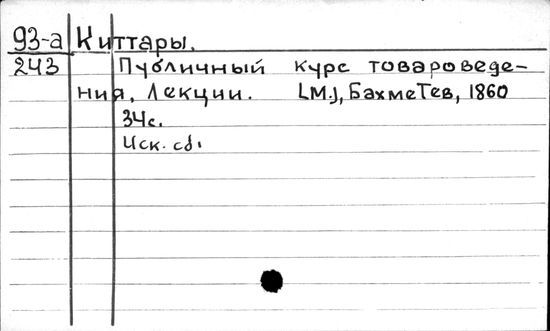 93-а Киттары.
243 Публичный курс товароведе-
ния, Лекции. [М.], Бахметев, 1860
34с.
Иск. сб.